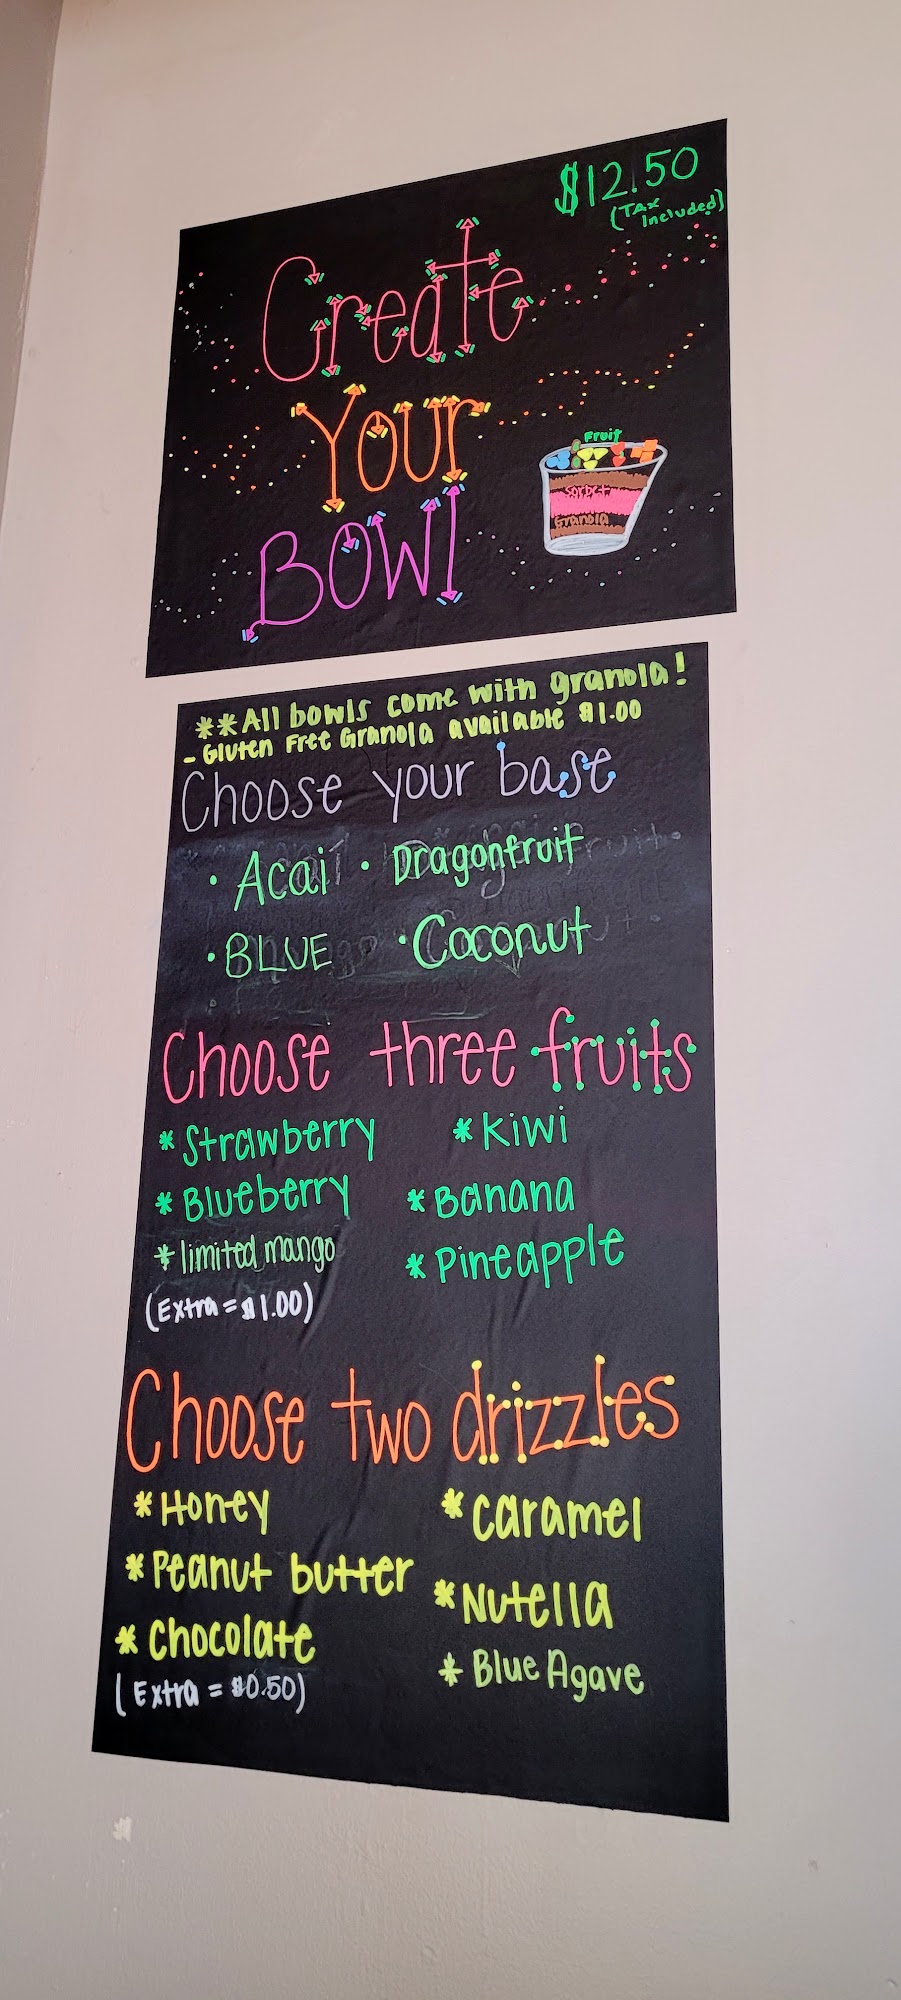 $12.50
(TAX
Included)
Create
Your
BOWl
Fruit
Sorbet
Granola
**All bowls come with granola!
- Gluten Free Granola available $1.00
Choose your base
· Acai · Dragonfruit
· BLUE · Coconut
Choose three fruits
* Strawberry * Kiwi
* Blueberry * Banana
* limited mango * Pineapple
(Extra = $1.00)
Choose two drizzles
* Honey * Caramel
* Peanut butter * Nutella
* Chocolate * Blue Agave
(Extra = $0.50)